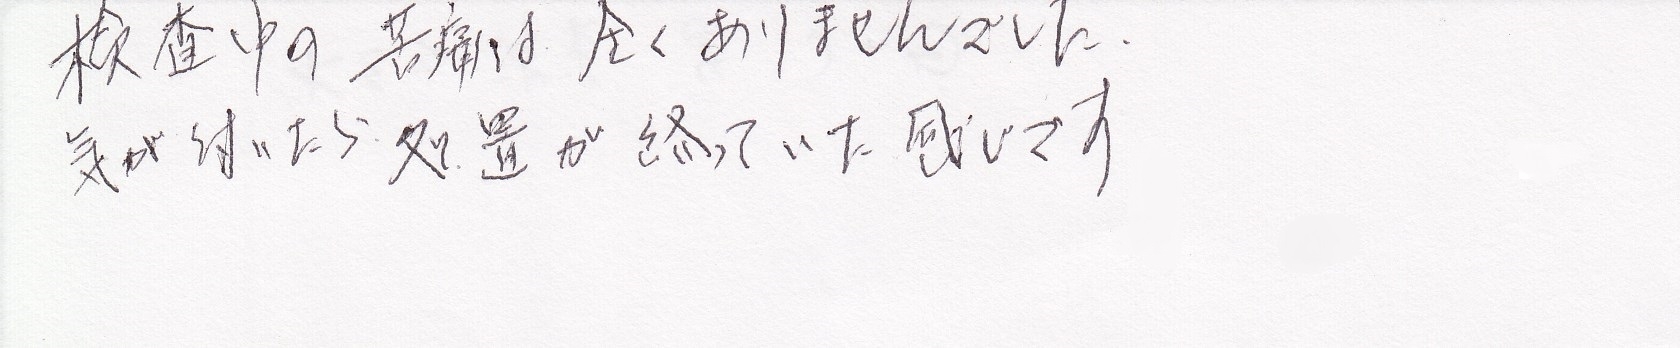 検査中の苦痛は全くありませんでした.
気が付いたら処置が終っていた感じです